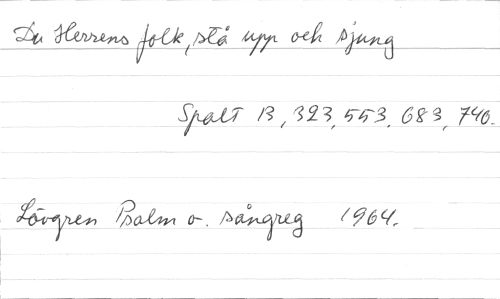 Du Herrens folk, stå upp och sjung
Spalt 13, 323, 553, 683, 740.
Lövgren Psalm o. sångreg 1964.